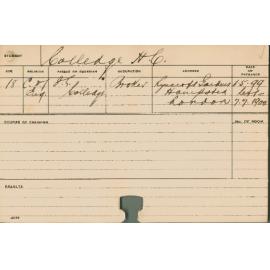 STUDENT Colledge H. C.
AGE RELIGION PARENT OR GUARDIAN OCCUPATION ADDRESS DATE OF ENTRANCE
18 C. of Colledge Broker Lyncroft Gardens 1.5.99
Eng. Hampstead left
London 7.7.1900
COURSE OF
NO. OF ROOM
RESULTS